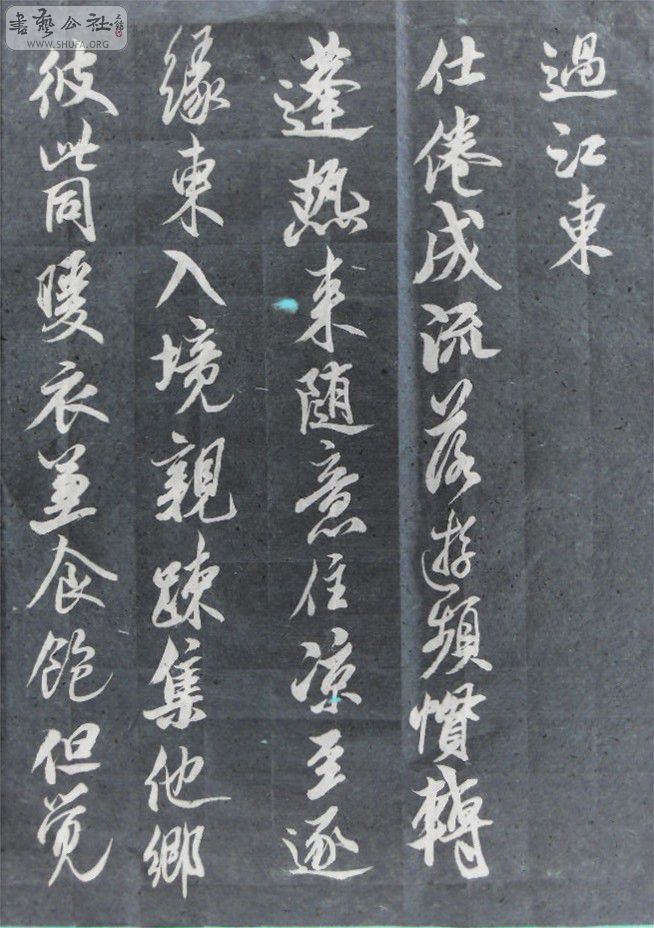 過江東
仕倦成流落遊頻慣轉
蓬熱来随意住涼至逐
緣東入境親疎集他郷
彼此同暖衣兼食飽但覚
書藝公社
WWW.SHUFA.ORG